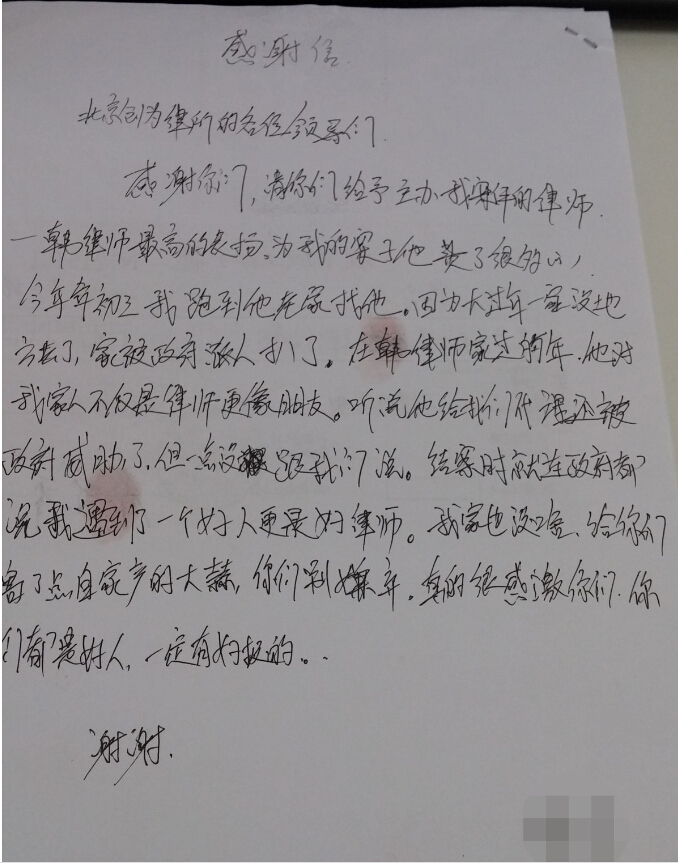 感谢信
北京创为律所的各位领导们
感谢你们,请你们给予主办我案件的律师
一韩律师最高的表扬、为我的案子他费了很多心,
今年年初三我跑到他老家找他。因为大过年一家没地
方去了,家被政府派人扒了。在韩律师家过的年.他对
我家人不仅是律师更像朋友。听说他给我们代理还被
政府威胁了.但一点没跟我们说。结案时就连政府都
说我遇到了一个好人更是好律师。我家也没啥、给你们
寄了点自家产的大蒜,你们别嫌弃。真的很感激你们.你
们都是好人,一定有好报的。.
谢谢.